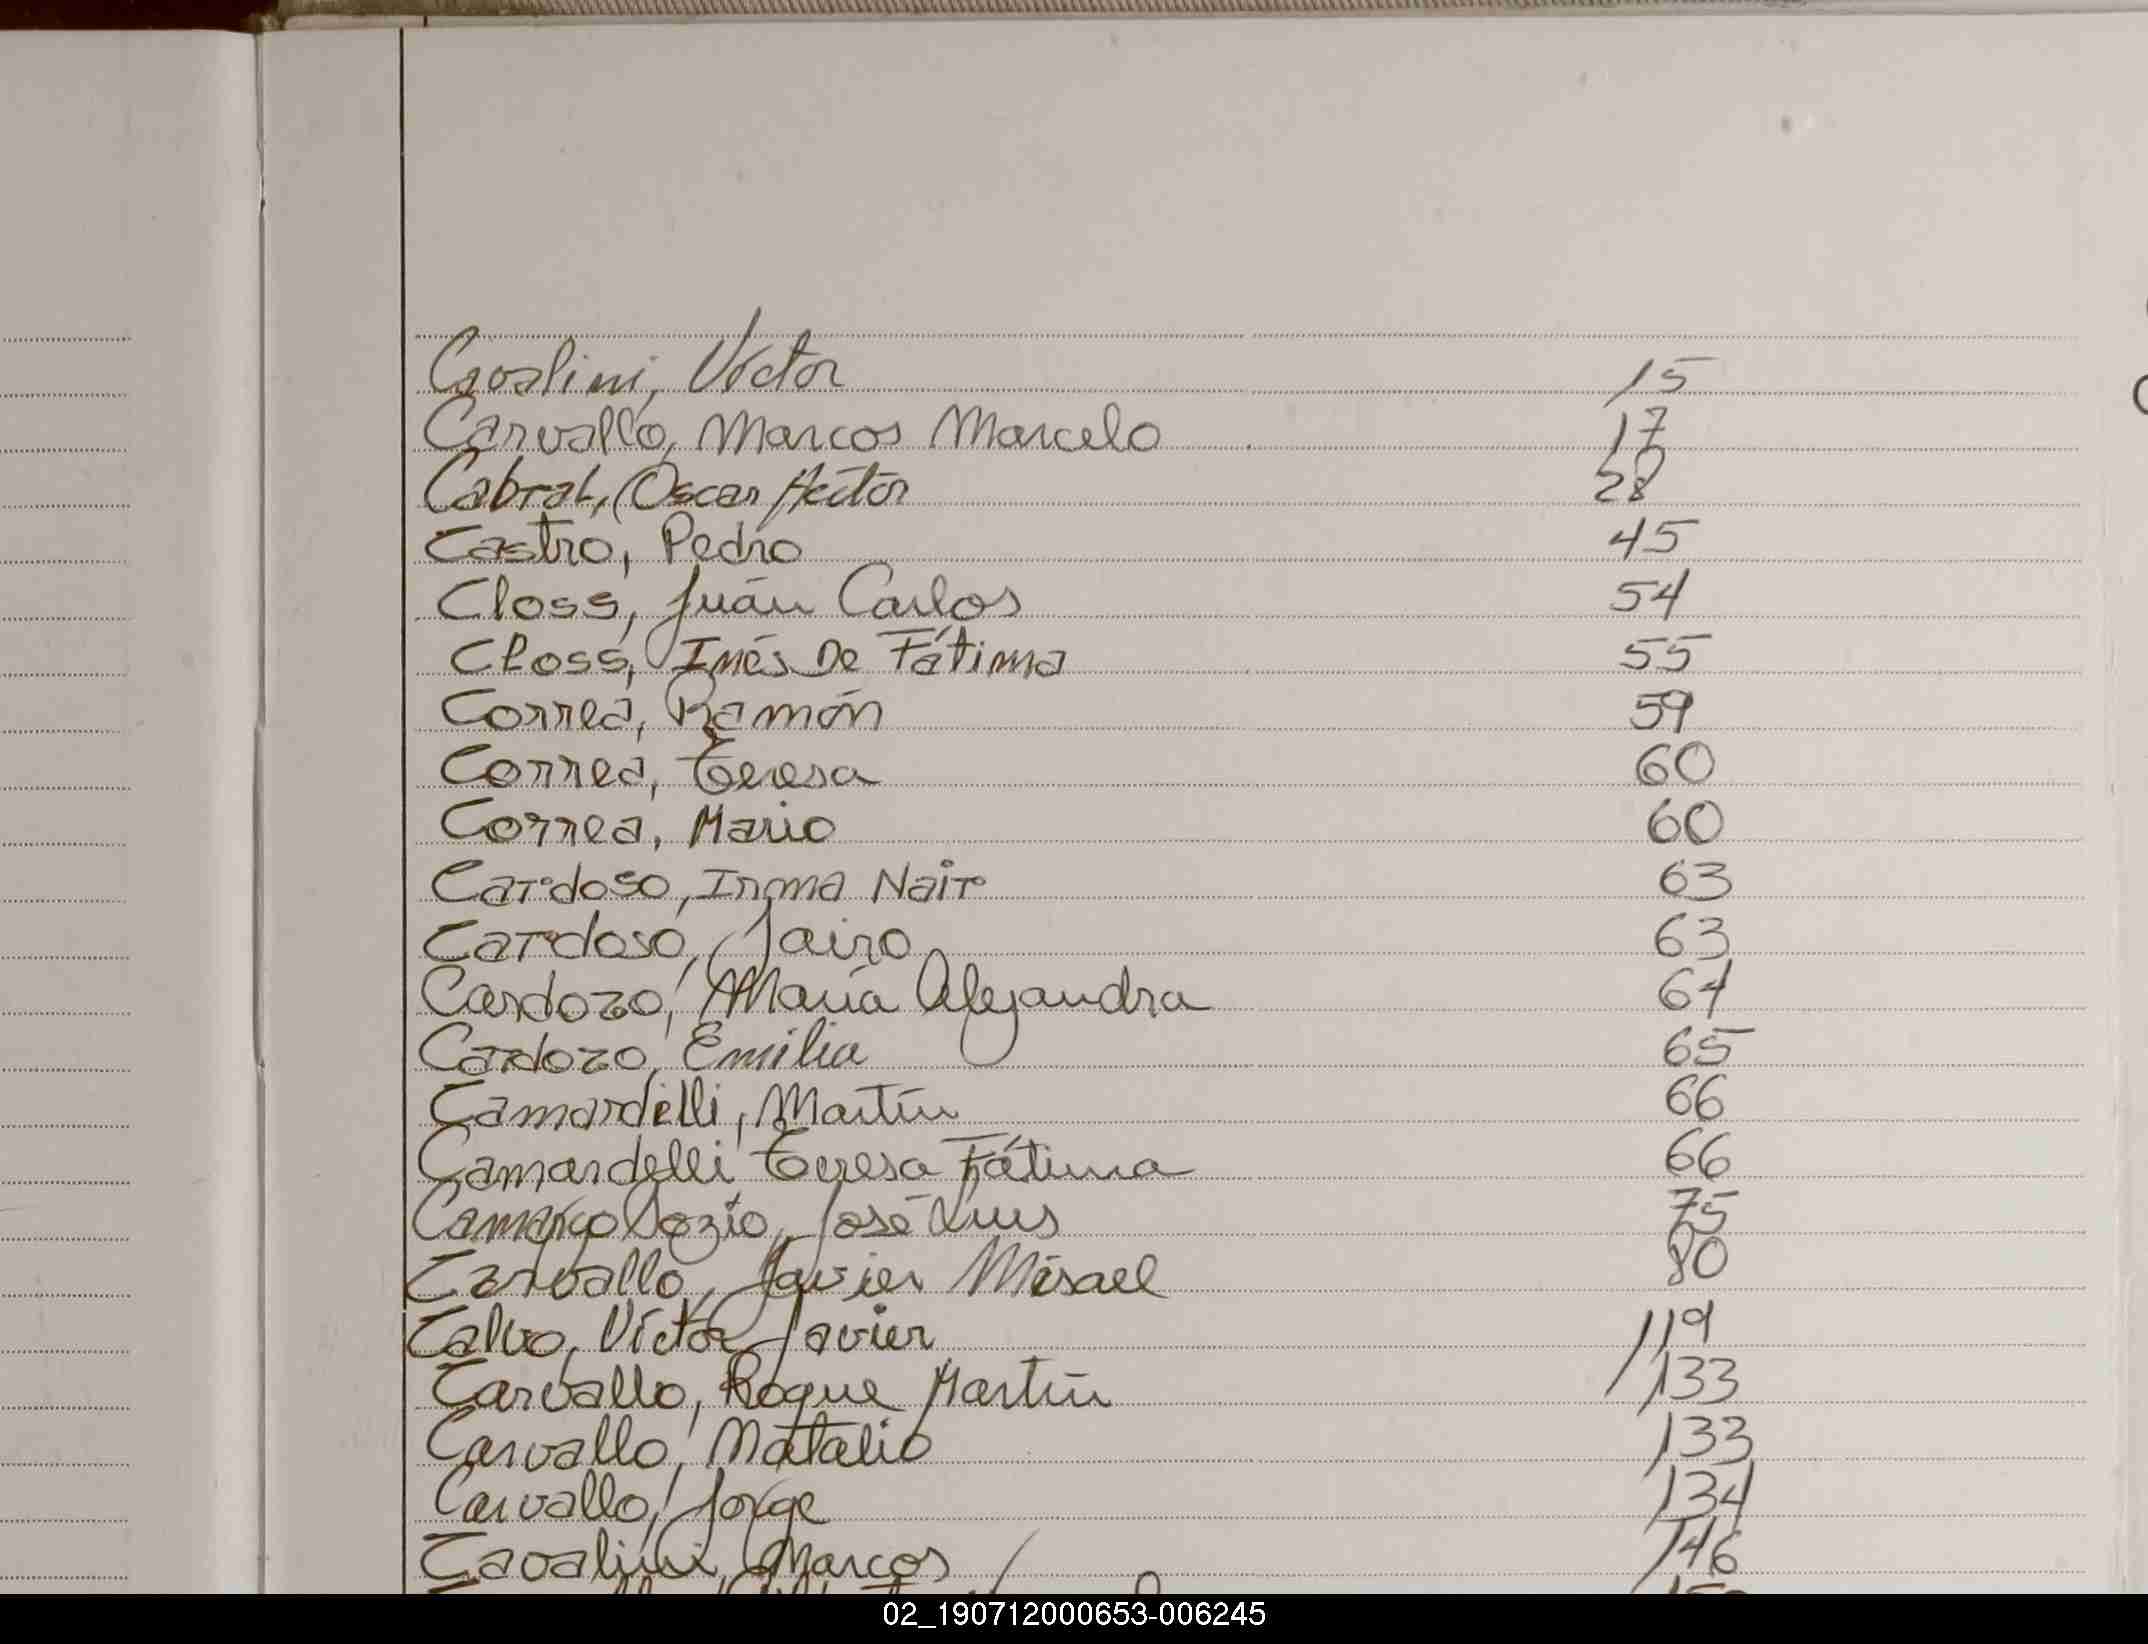 Cavalini, Víctor 15
Carvallo, Marcos Marcelo 17
Cabral, Oscar Héctor 28
Castro, Pedro 45
Closs, Juán Carlos 54
Closs, Inés De Fátima 55
Correa, Ramón 59
Correa, Teresa 60
Correa, Mario 60
Cardoso, Irma Nair 63
Cardoso, Jairo 63
Cardozo, María Alejandra 64
Cardozo, Emilia 65
Camardelli, Martín 66
Camardelli Teresa Fátima 66
José Luis 75
Carvallo, Javier Misael 80
Calvo, Víctor Javier 119
Carvallo, Roque Martín 133
Carvallo, Natalio 133
Carvallo, Jorge 134
Cavalini, Marcos 146
02_190712000653-006245